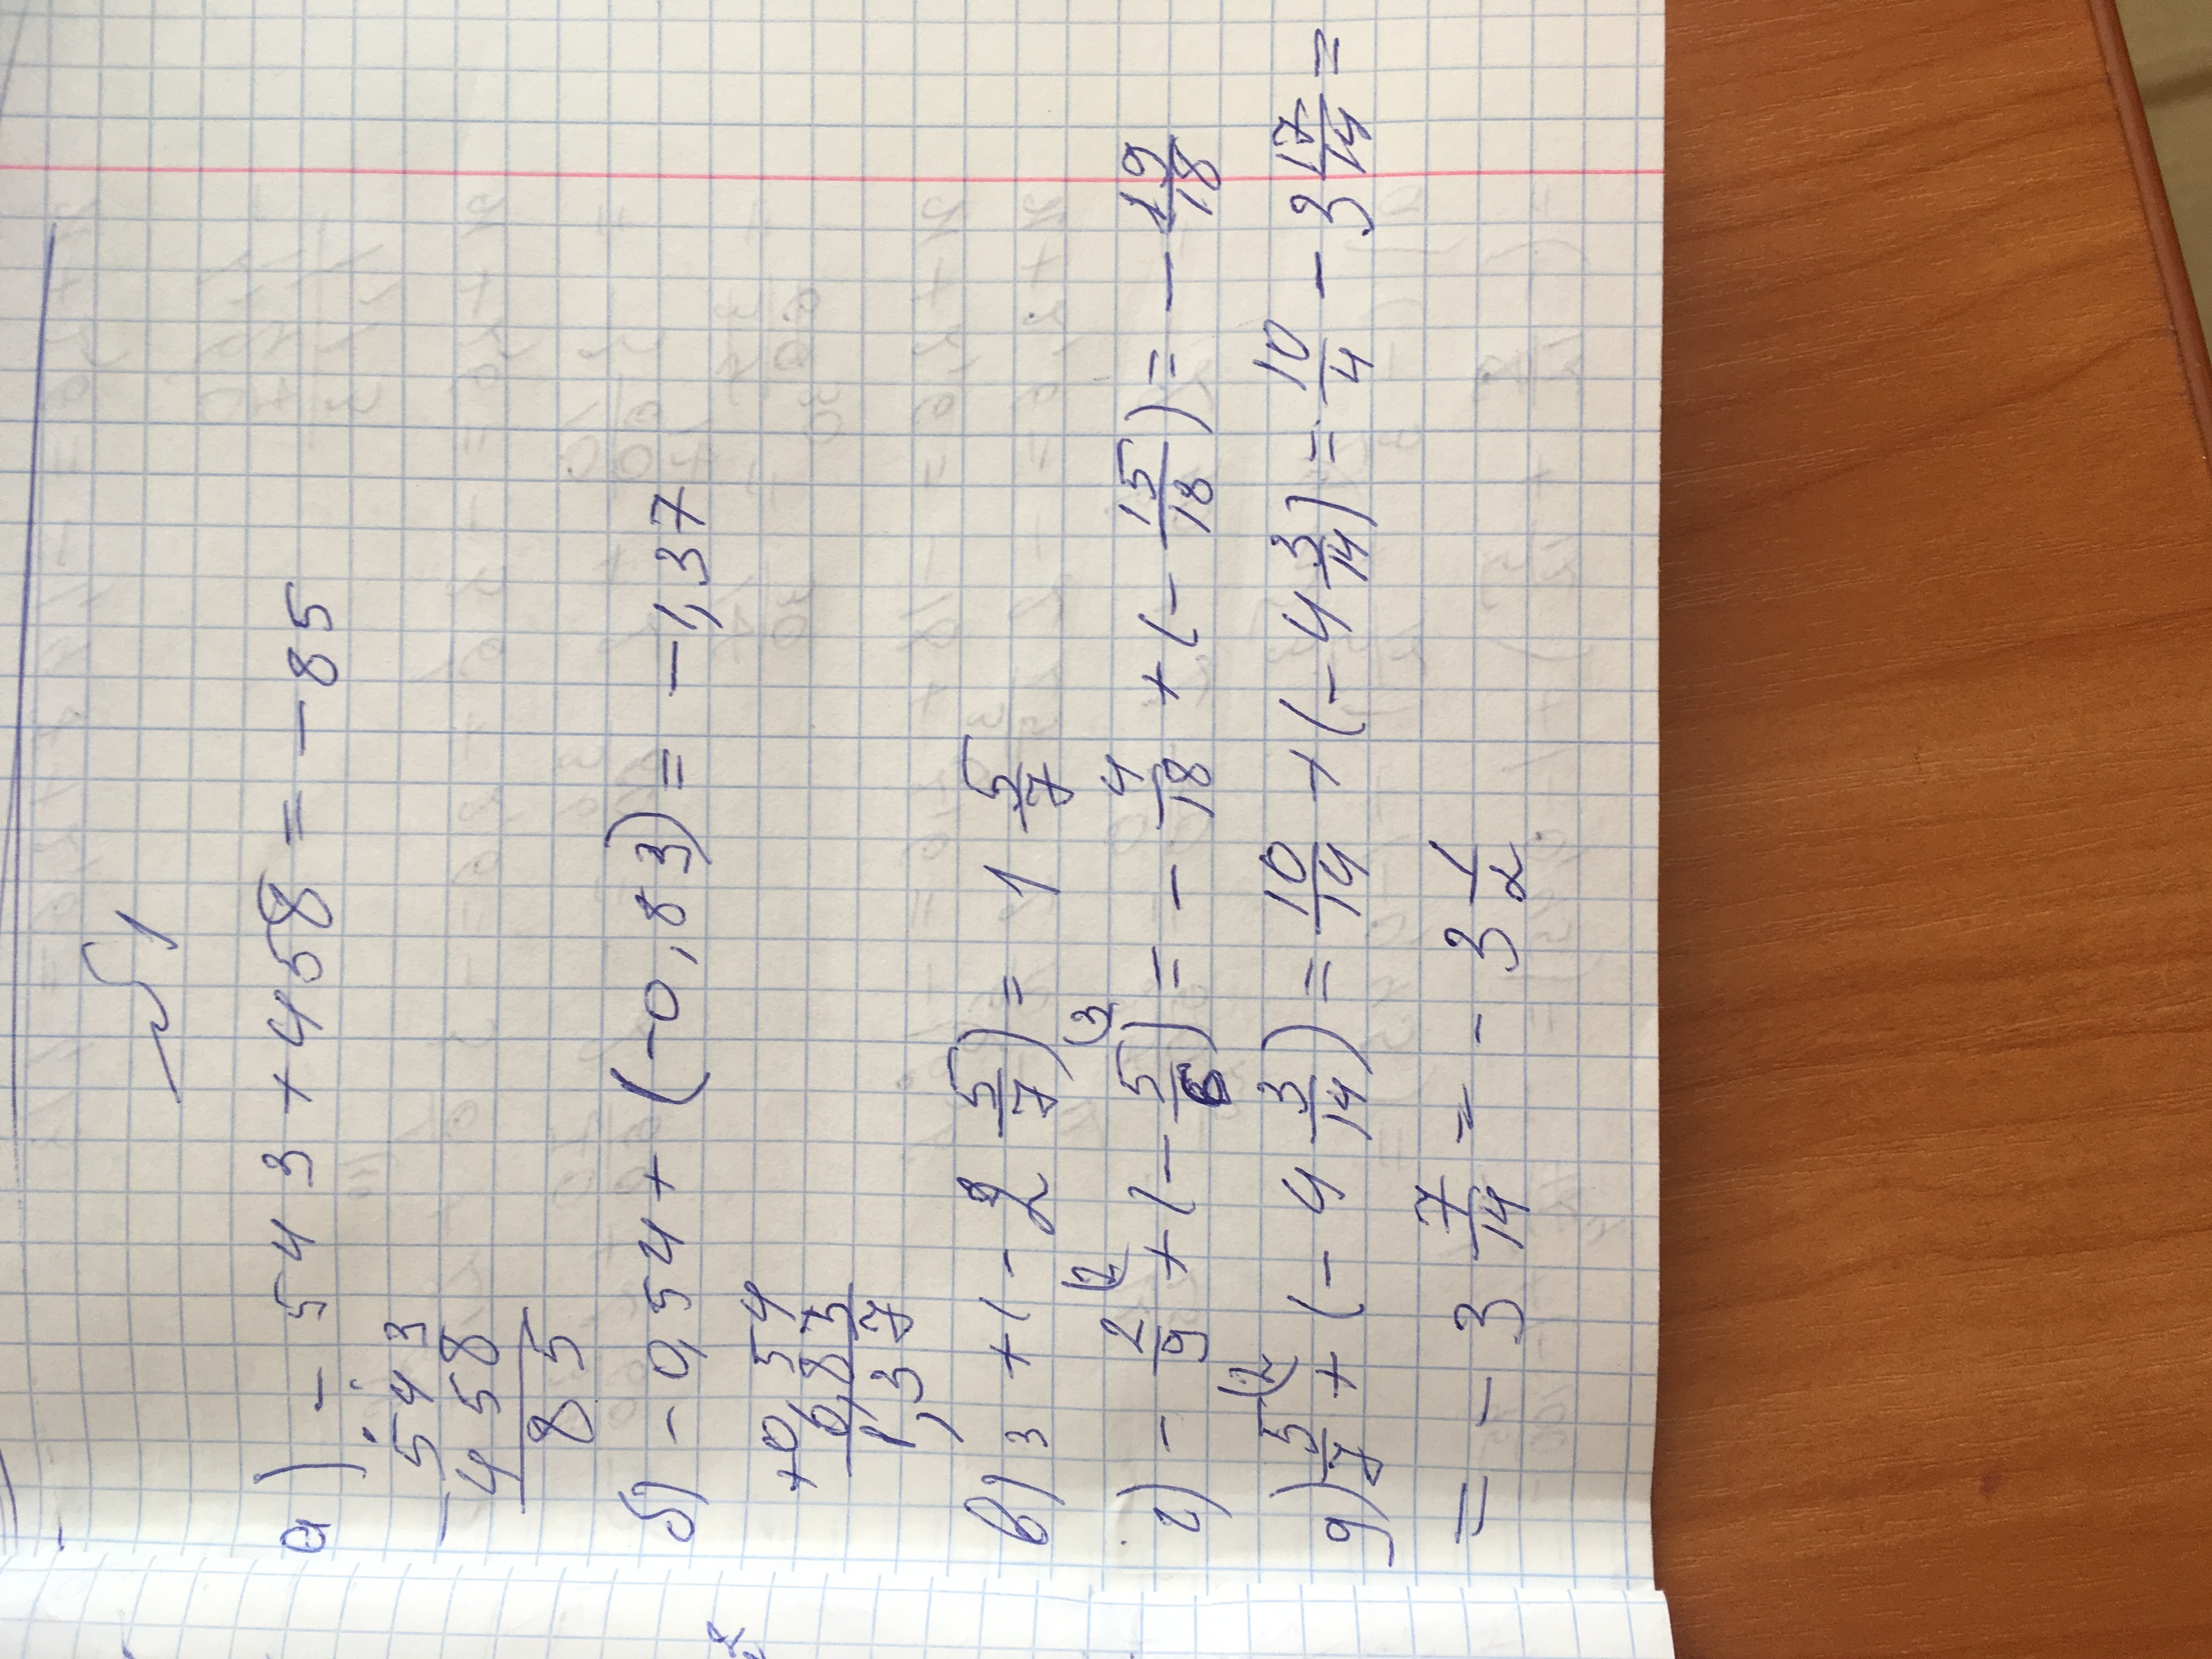 №1
а) - 543 + 458 = - 85
543
- 458
85
б) - 0,54 + (-0,83) = - 1,37
+ 0,54
0,83
1,37
в) 3 + (- 2 5/7) = 1 5/7
г) - 2/9 (2 + (- 5/6) (3 = - 4/18 + (- 15/18) = - 19/18
д) 5/7 (2 + (- 4 3/14) = 10/14 + (- 4 3/14) = 10/4 - 3 17/14 =
= - 3 7/14 = - 3 1/2